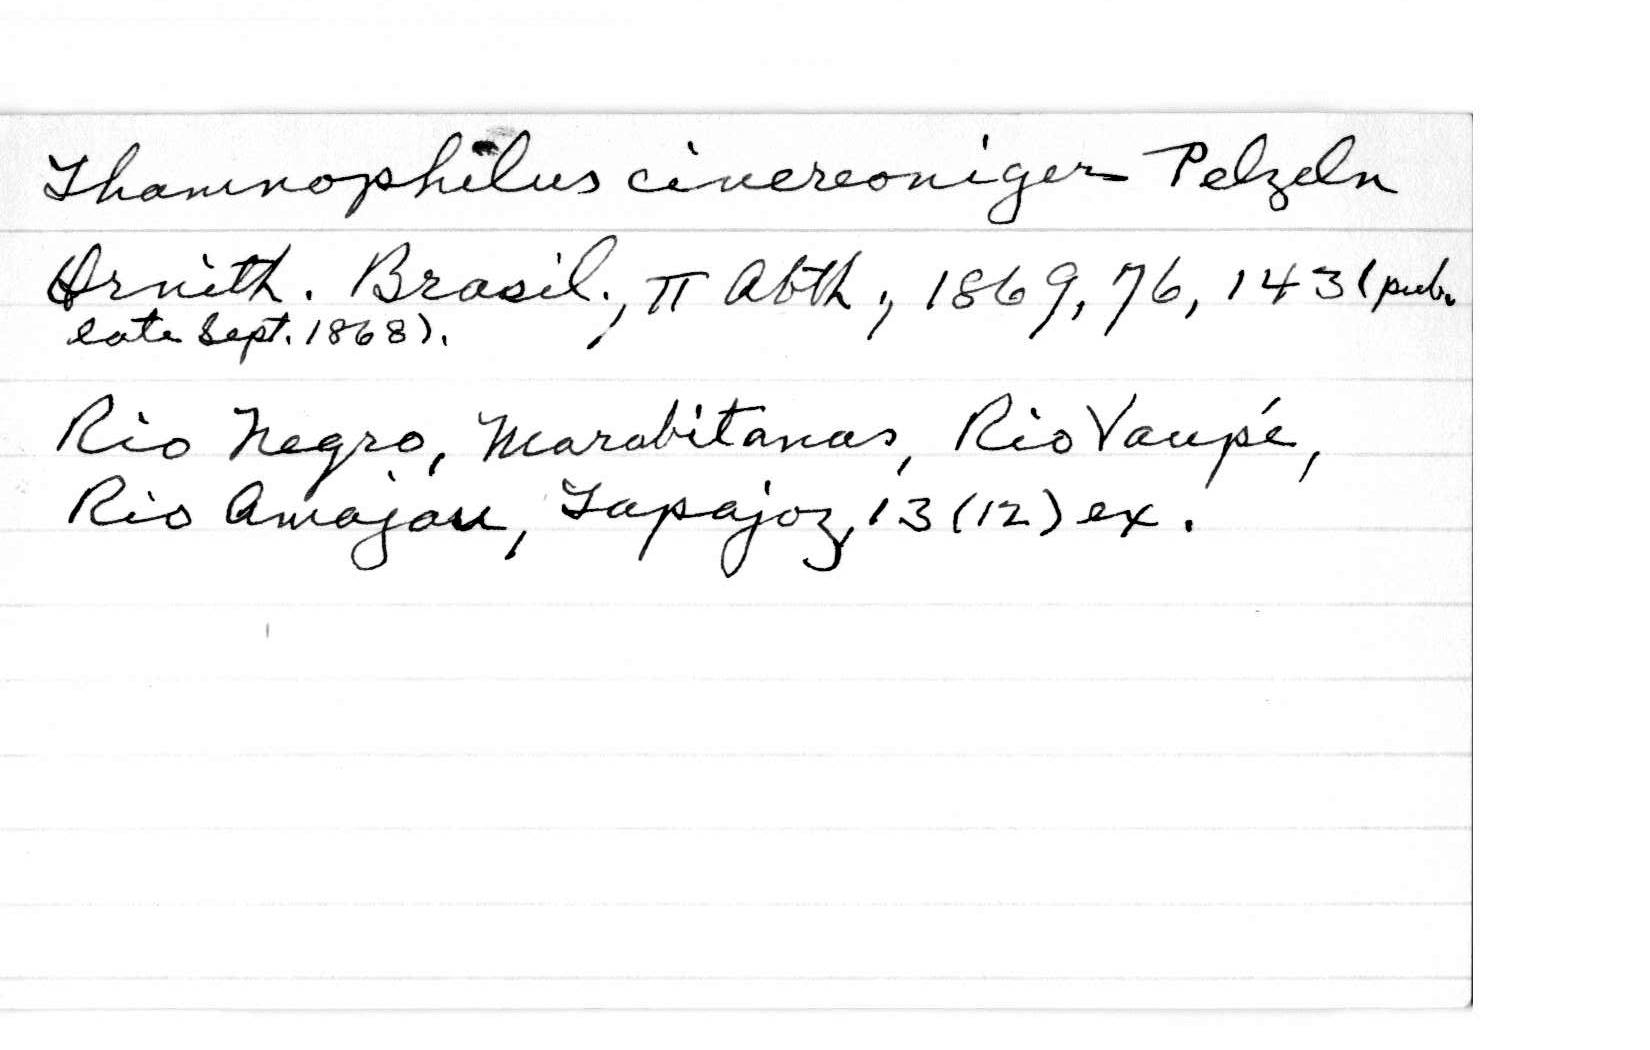 Thamnophilus cinereoniger Pelzeln
Ornith. Brasil., II Abth., 1869, 76, 143 (pub.
late Sept. 1868).
Rio Negro, Marabitanas, Rio Vaupé,
Rio Amajau, Tapajoz, 13 (12) ex.